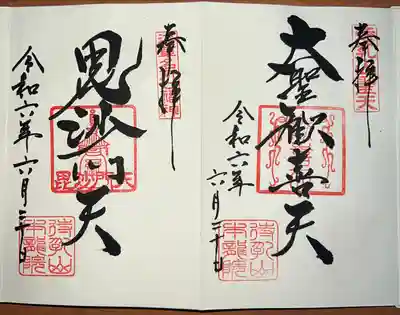 奉拝
大聖歓喜天
令和六年
六月二十日
待乳山
本龍院
奉拝
毘沙門天
令和六年六月二十日
待乳山
本龍院